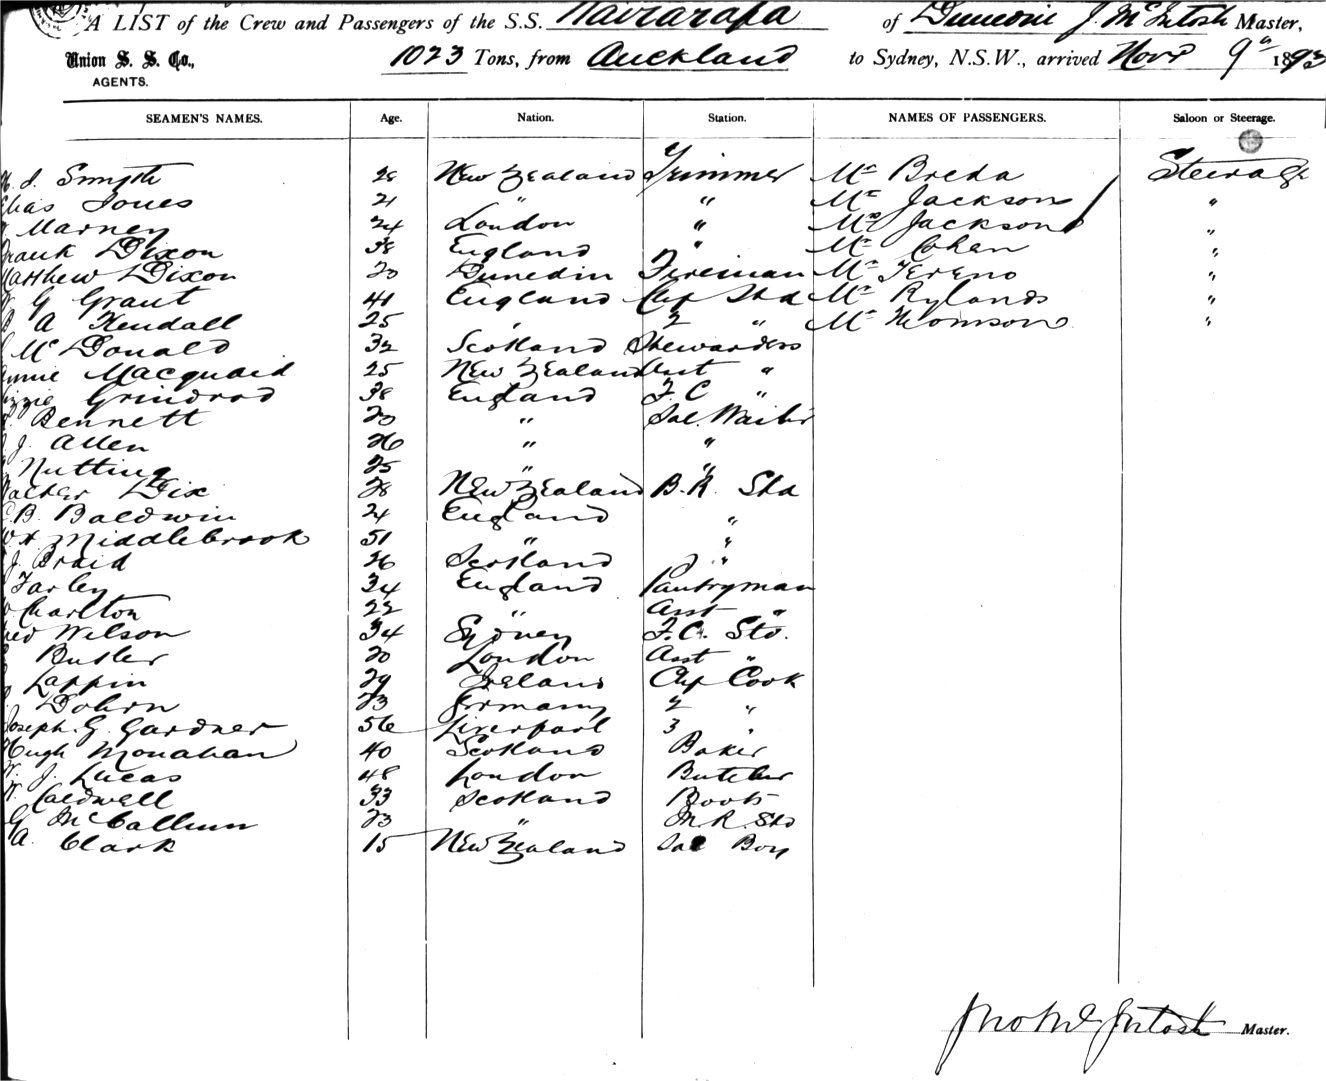 A LIST of the Crew and Passengers of the S.S. Wairarapa of Dunedin J. McIntosh Master,
Union S. S. Co., 1023 Tons, from Auckland to Sydney, N.S.W., arrived Novr 9th 1893
AGENTS.
SEAMEN'S NAMES. Age. Nation. Station. NAMES OF PASSENGERS. Saloon or Steerage.
J. Smyth 28 New Zealand Trimmer Mr Breda Steerage
Chas Jones 21 " " Mr Jackson "
Marney 24 London " Mrs Jackson "
Frank Dixon 38 England " Mr Cohen "
Matthew Dixon 20 Dunedin Fireman Mr Tereno "
G Grant 41 England Chf Std Mr Rylands "
A Kendall 25 " 2 " Mr Thomson "
McDonald 32 Scotland Stewardess
Annie Macquaid 25 New Zealand Asst "
Lizzie Grindrod 38 England F.C "
Bennett 20 " Sal. Waiter
J. Allen 26 " "
Nutting 25 " "
Walter Dix 28 New Zealand B.R. Std
C B. Baldwin 24 England "
Middlebrook 51 " "
J. Braid 26 Scotland "
Farley 34 England Pantryman
Charlton 22 " Asst "
Fred Wilson 34 Sydney F.C. Std.
Butler 20 London Asst "
Lappin 29 Ireland Chf Cook
Dohrn 23 Germany 2 "
Joseph. G. Gardner 56 Liverpool 3 "
Hugh Monahan 40 Scotland Baker
W. J. Lucas 48 London Butcher
W. Caldwell 33 Scotland Boots
G McCallum 23 " M.R. Std
A. Clark 15 New Zealand Sal Boy
Jno McIntosh Master.